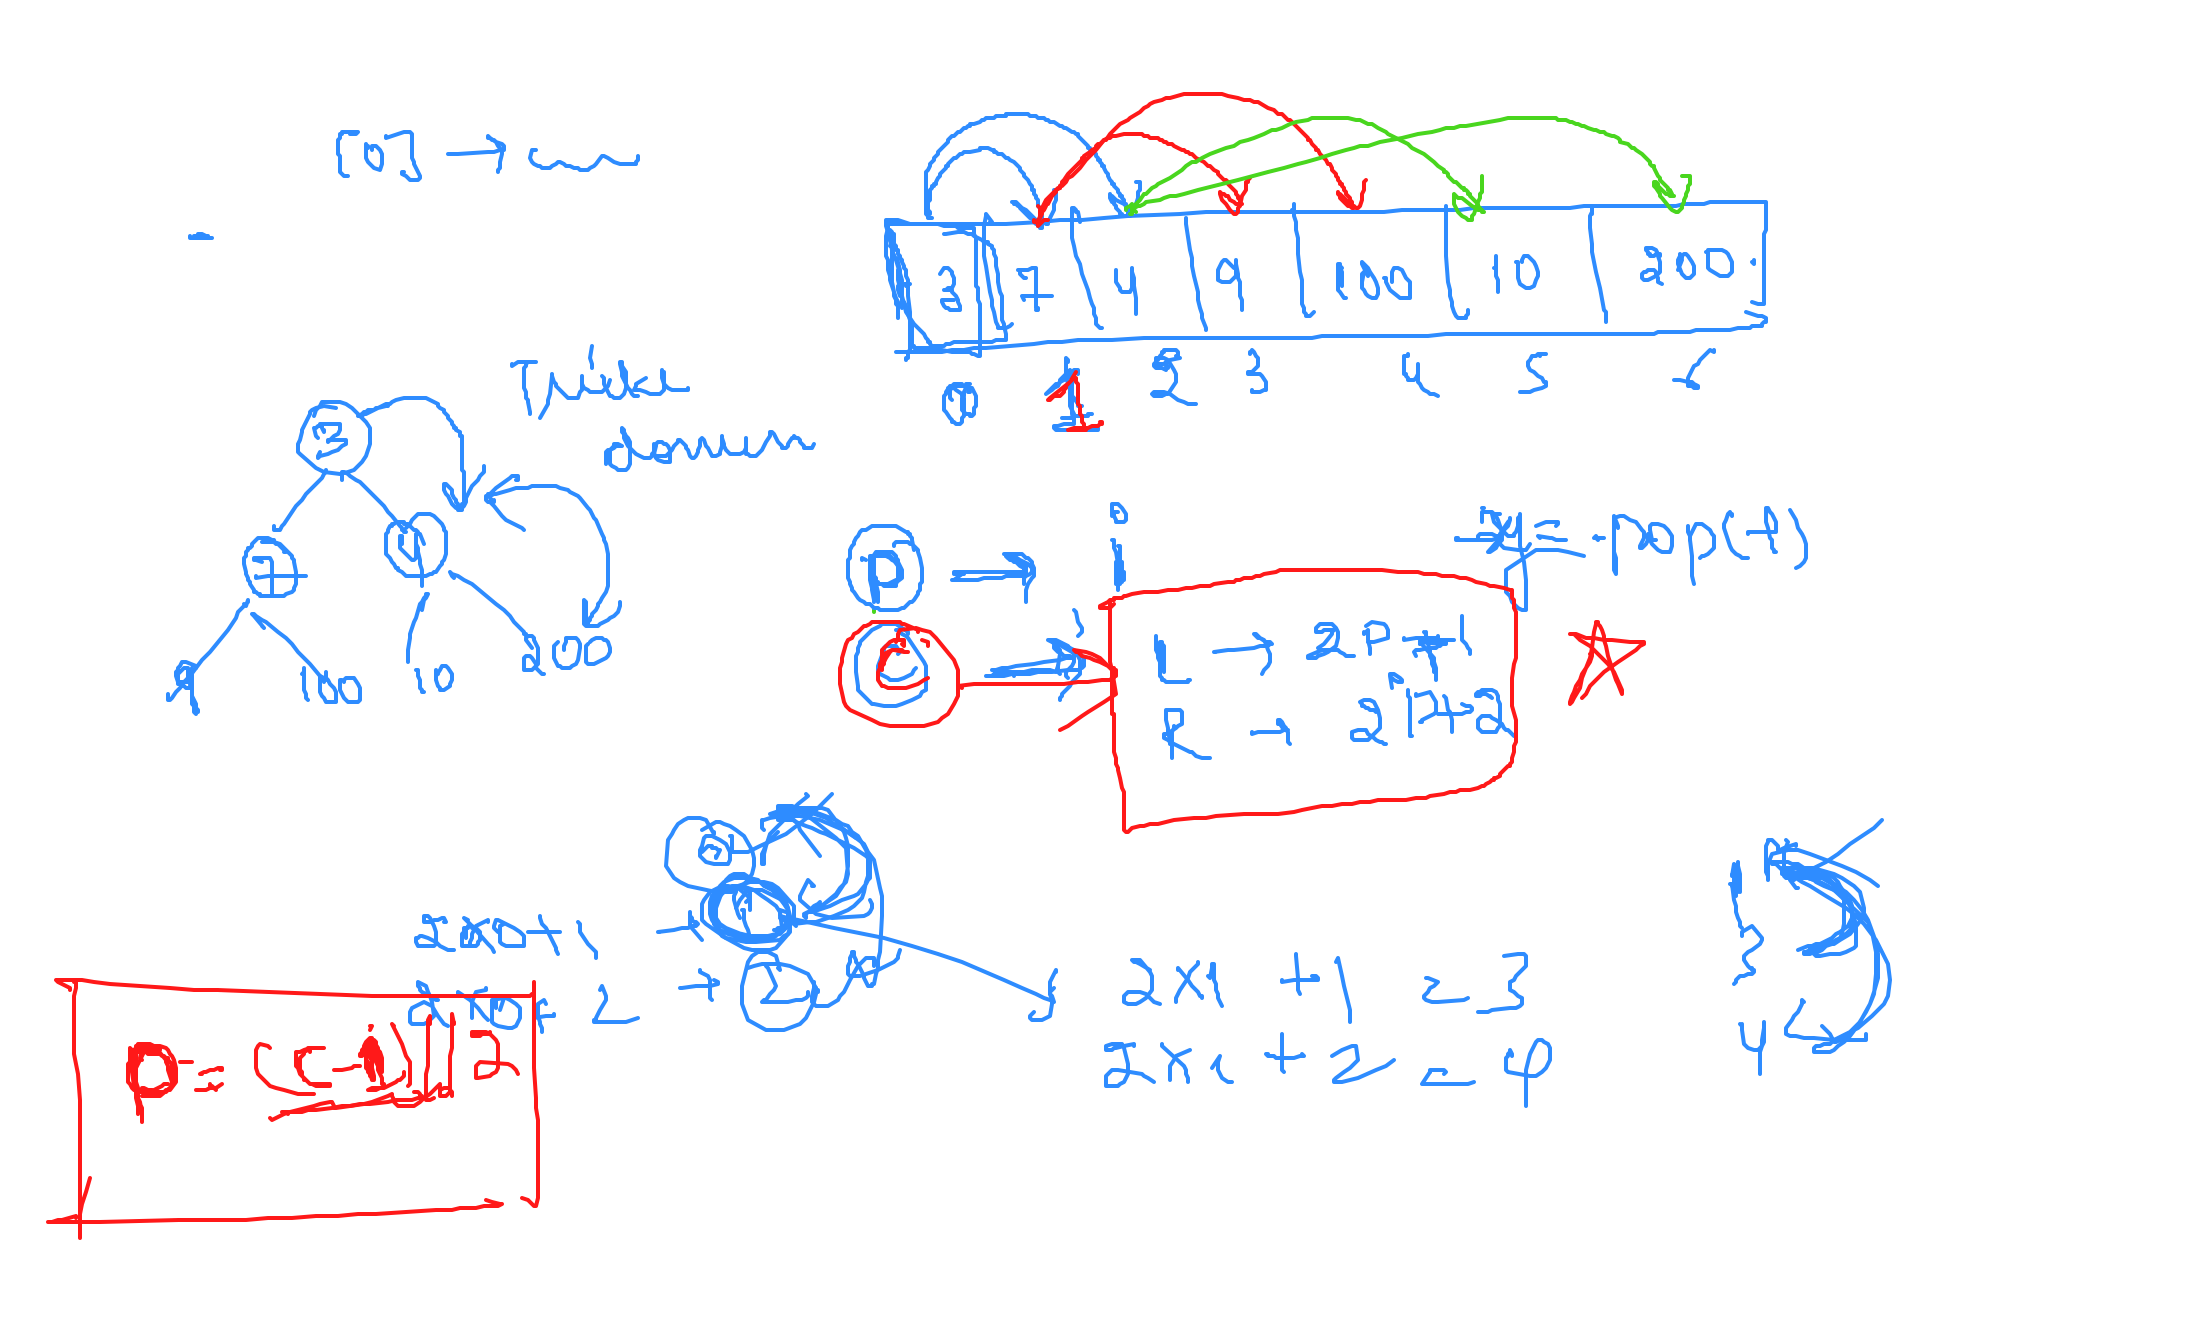 [0] →
3 7 4 9 100 10 200
0 1 2 3 4 5 6
Trickle
down
3
7 4
9 100 10 200
P → i
C →
L → 2P+1
R → 2P+2
= pop(+)
0
2x0+1 → 1
2x0+2 → 2
2x1 + 1 = 3
2x1 + 2 = 4
P
1
3
4
P = (C-1)//2